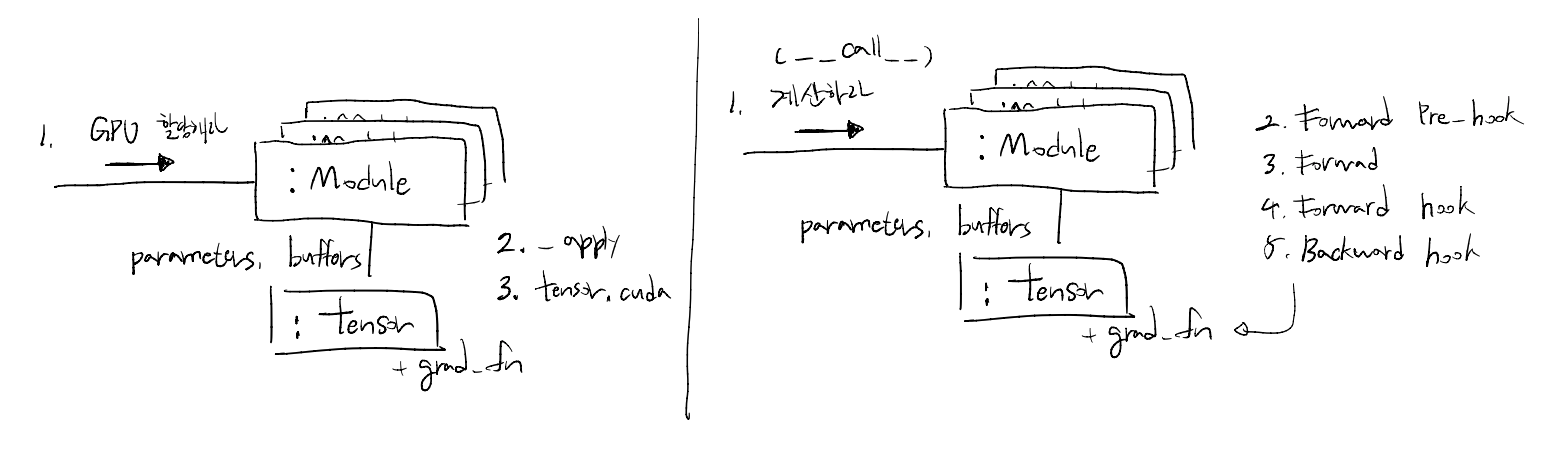 1. GPU 할당해라
: Module
parameters, buffers
2. _apply
3. tensor.cuda
: tensor
+ grad_fn
(__call__)
1. 계산하라
: Module
parameters, buffers
: tensor
+ grad_fn
2. Forward Pre-hook
3. Forwad
4. Forward hook
5. Backward hook